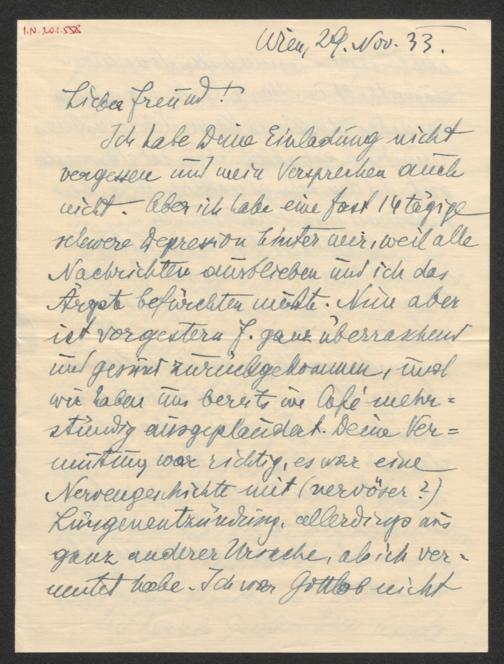 I.N. 201.558
Wien, 29. Nov. 33.
Lieber Freund!
Ich habe Deine Einladung nicht
vergessen und mein Versprechen auch
nicht. Aber ich habe eine fast 14 tägige
schwere Depression hinter mir, weil alle
Nachrichten ausblieben und ich das
Ärgste befürchten mußte. Nun aber
ist vorgestern J. ganz überraschend
und gesund zurückgekommen, und
wir haben uns bereits im Café mehr=
stündig ausgeplaudert. Deine Ver=
mutung war richtig, es war eine
Nervengeschichte mit (nervöser?)
Lungenentzündung, allerdings aus
ganz anderer Ursache, als ich ver=
mutet habe. Ich war Gottlob nicht